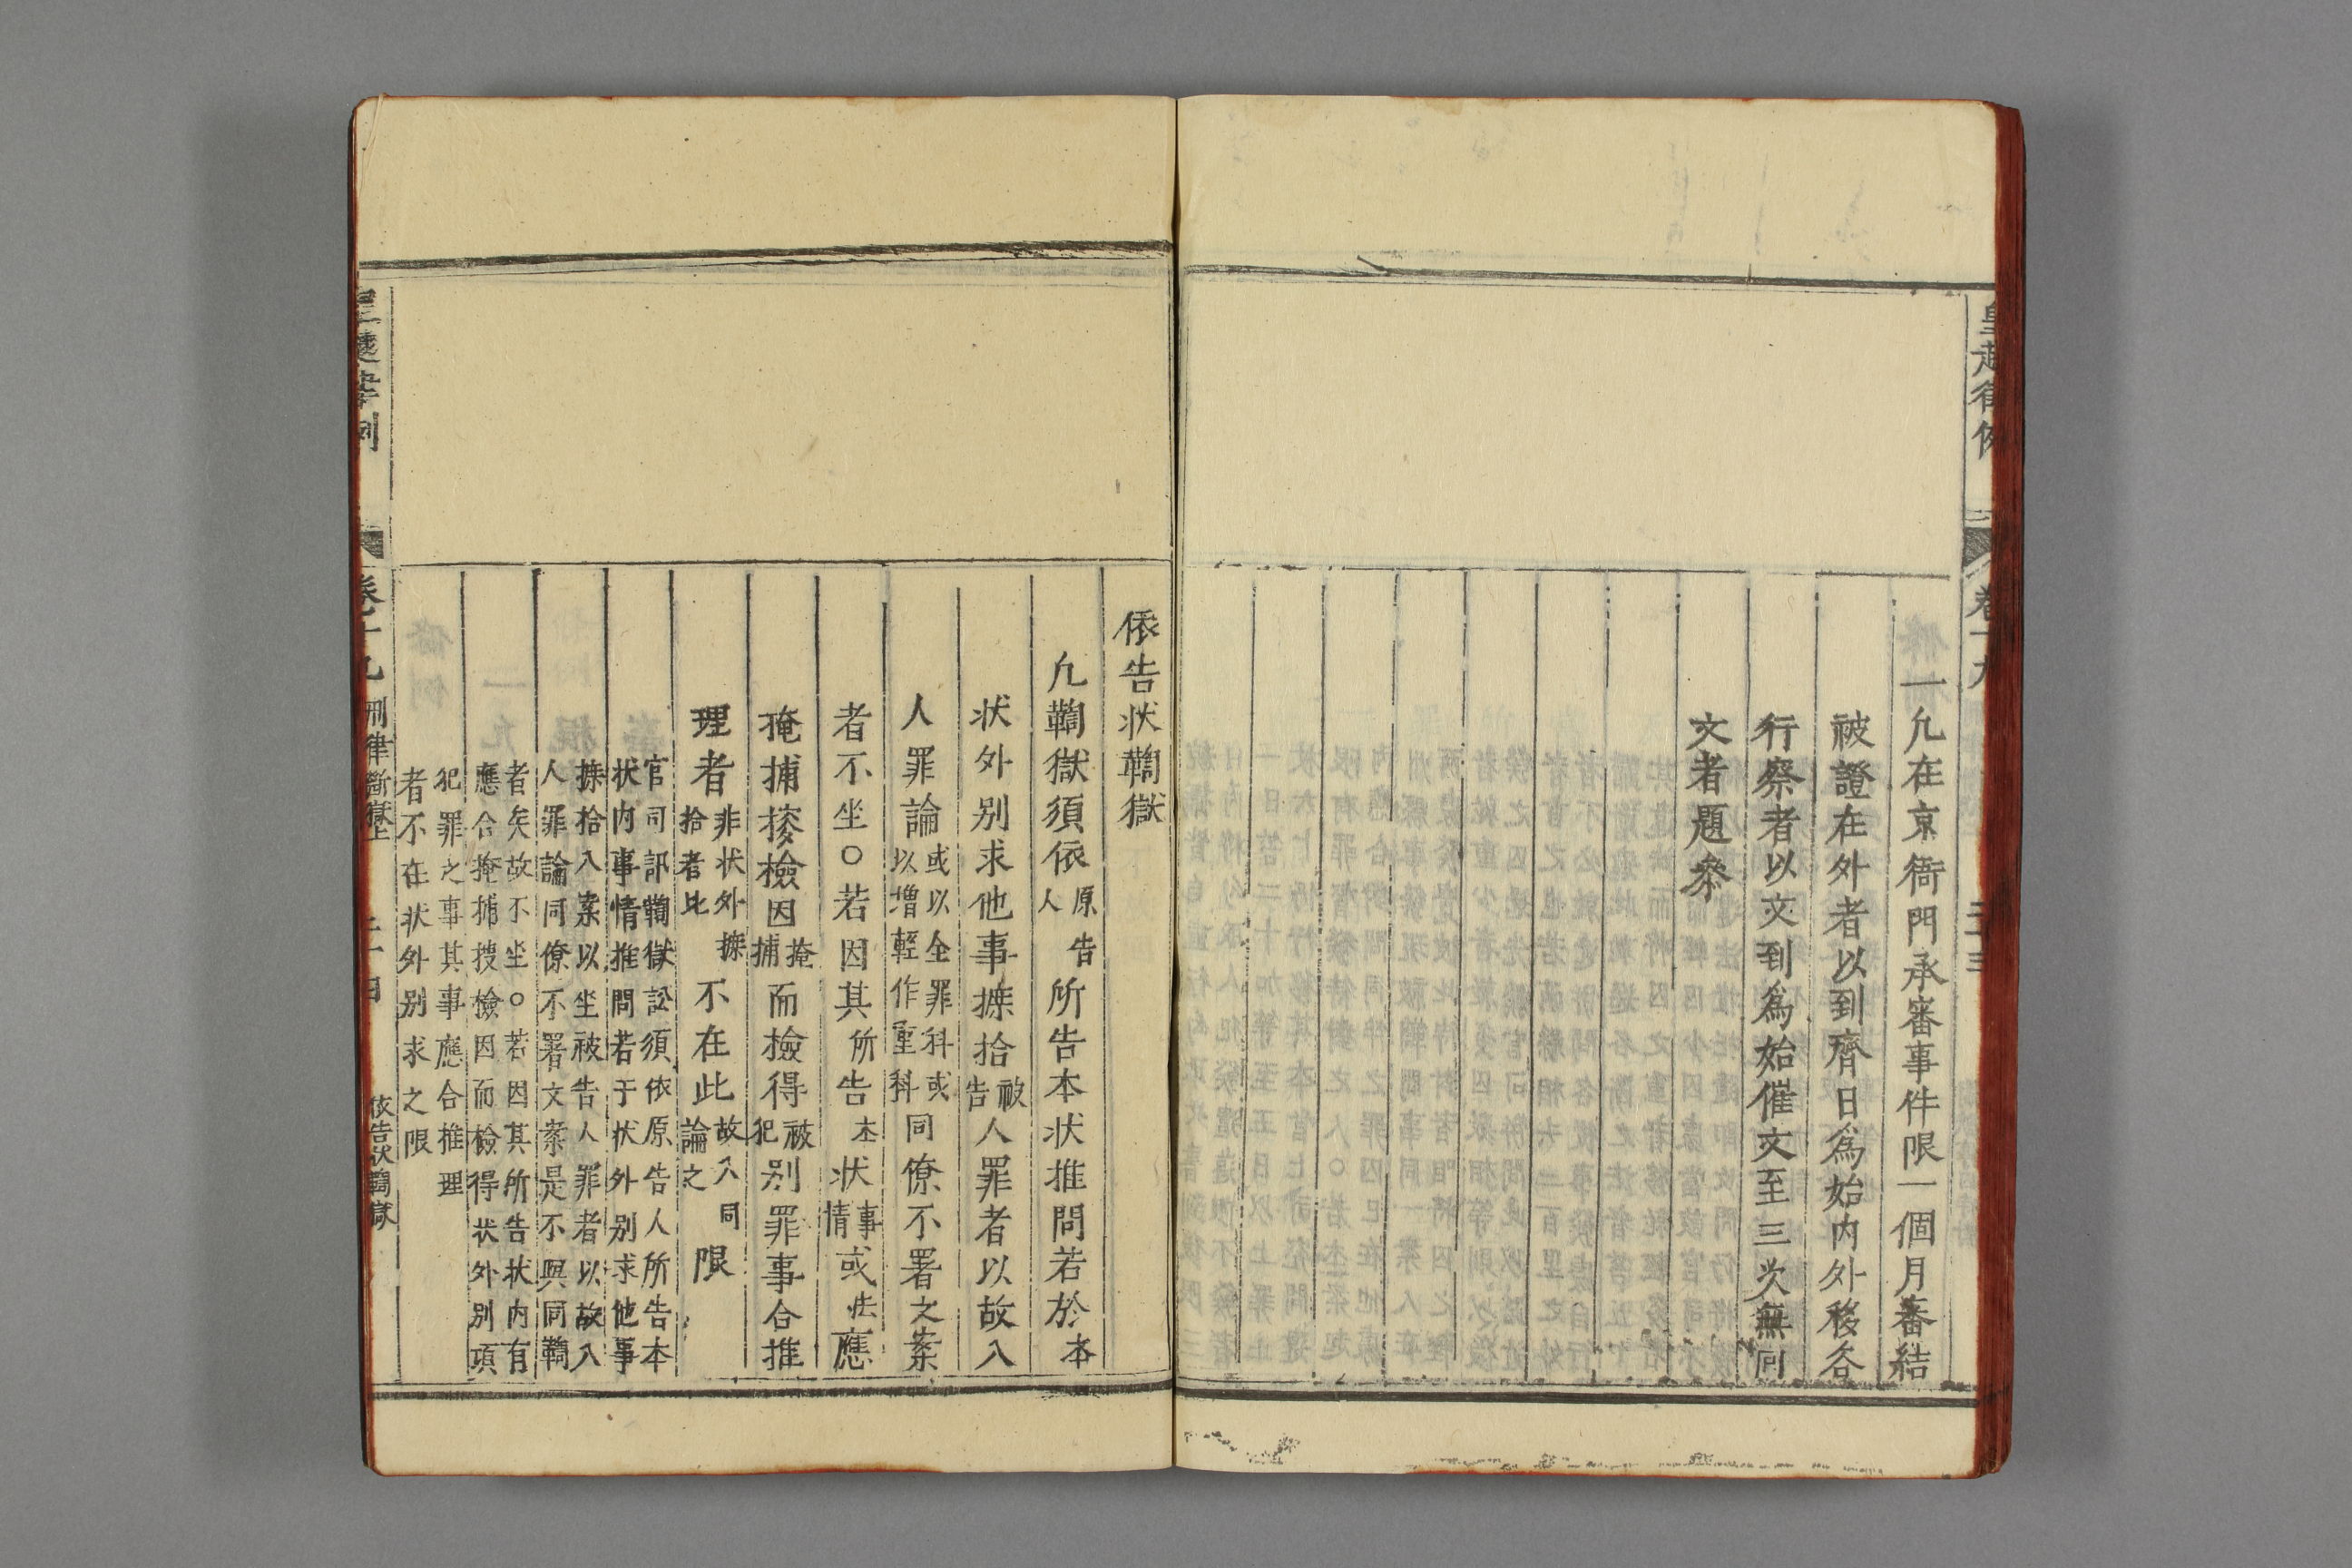 一凡在京衙門承審事件限一個月審結
被證在外者以到齊日為始內外移咨
行察者以文到為始催文至三次無回
文者題參
皇越律例
卷十九
二十三
依告狀鞫獄
凡鞫獄須依原告人所告本狀推問若於本
狀外別求他事摭拾被告人罪者以故入
人罪論或以全罪科或以增輕作重科同僚不署文案
者不坐○若因其所告本狀事情或法應
掩捕搜檢因掩捕而檢得被犯別罪事合推
理者非狀外摭拾者比不在此故入同論之限
官司訊鞫獄訟須依原告人所告本
狀內事情推問若于狀外別求他事
摭拾入案以坐被告人罪者以故入
人罪論同僚不署文案是不與同鞫
者矣故不坐○若因其所告狀內有
應合掩捕搜檢因而檢得狀外別項
犯罪之事其事應合推理
者不在狀外別求之限
皇越律例
卷十九
刑律斷獄上
二十四
依告狀鞫獄